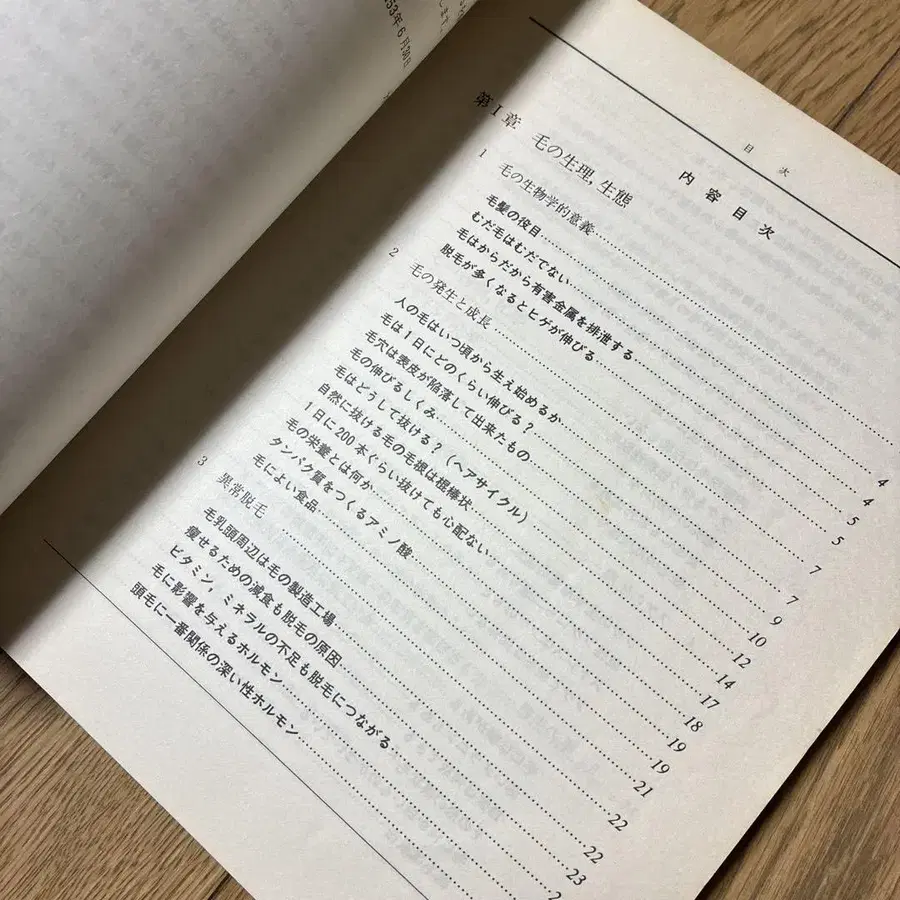 します
33年6月30日
目 次
内 容 目 次
第Ⅰ章 毛の生理,生態
1 毛の生物学的意義
毛髪の役目 4
むだ毛はむだでない 4
毛はからだから有害金属を排泄する 5
脱毛が多くなるとヒゲが伸びる 5
2 毛の発生と成長 7
人の毛はいつ頃から生え始めるか 7
毛は1日にどのくらい伸びる? 9
毛穴は表皮が陥落して出来たもの 10
毛の伸びるしくみ 12
毛はどうして抜ける?(ヘアサイクル) 14
自然に抜ける毛の毛根は棍棒状 17
1日に200本ぐらい抜けても心配ない 18
毛の栄養とは何か 19
タンパク質をつくるアミノ酸 19
毛によい食品 21
3 異常脱毛 22
毛乳頭周辺は毛の製造工場 22
痩せるための減食も脱毛の原因 23
ビタミン,ミネラルの不足も脱毛につながる 2
毛に影響を与えるホルモン
頭毛に一番関係の深い性ホルモン